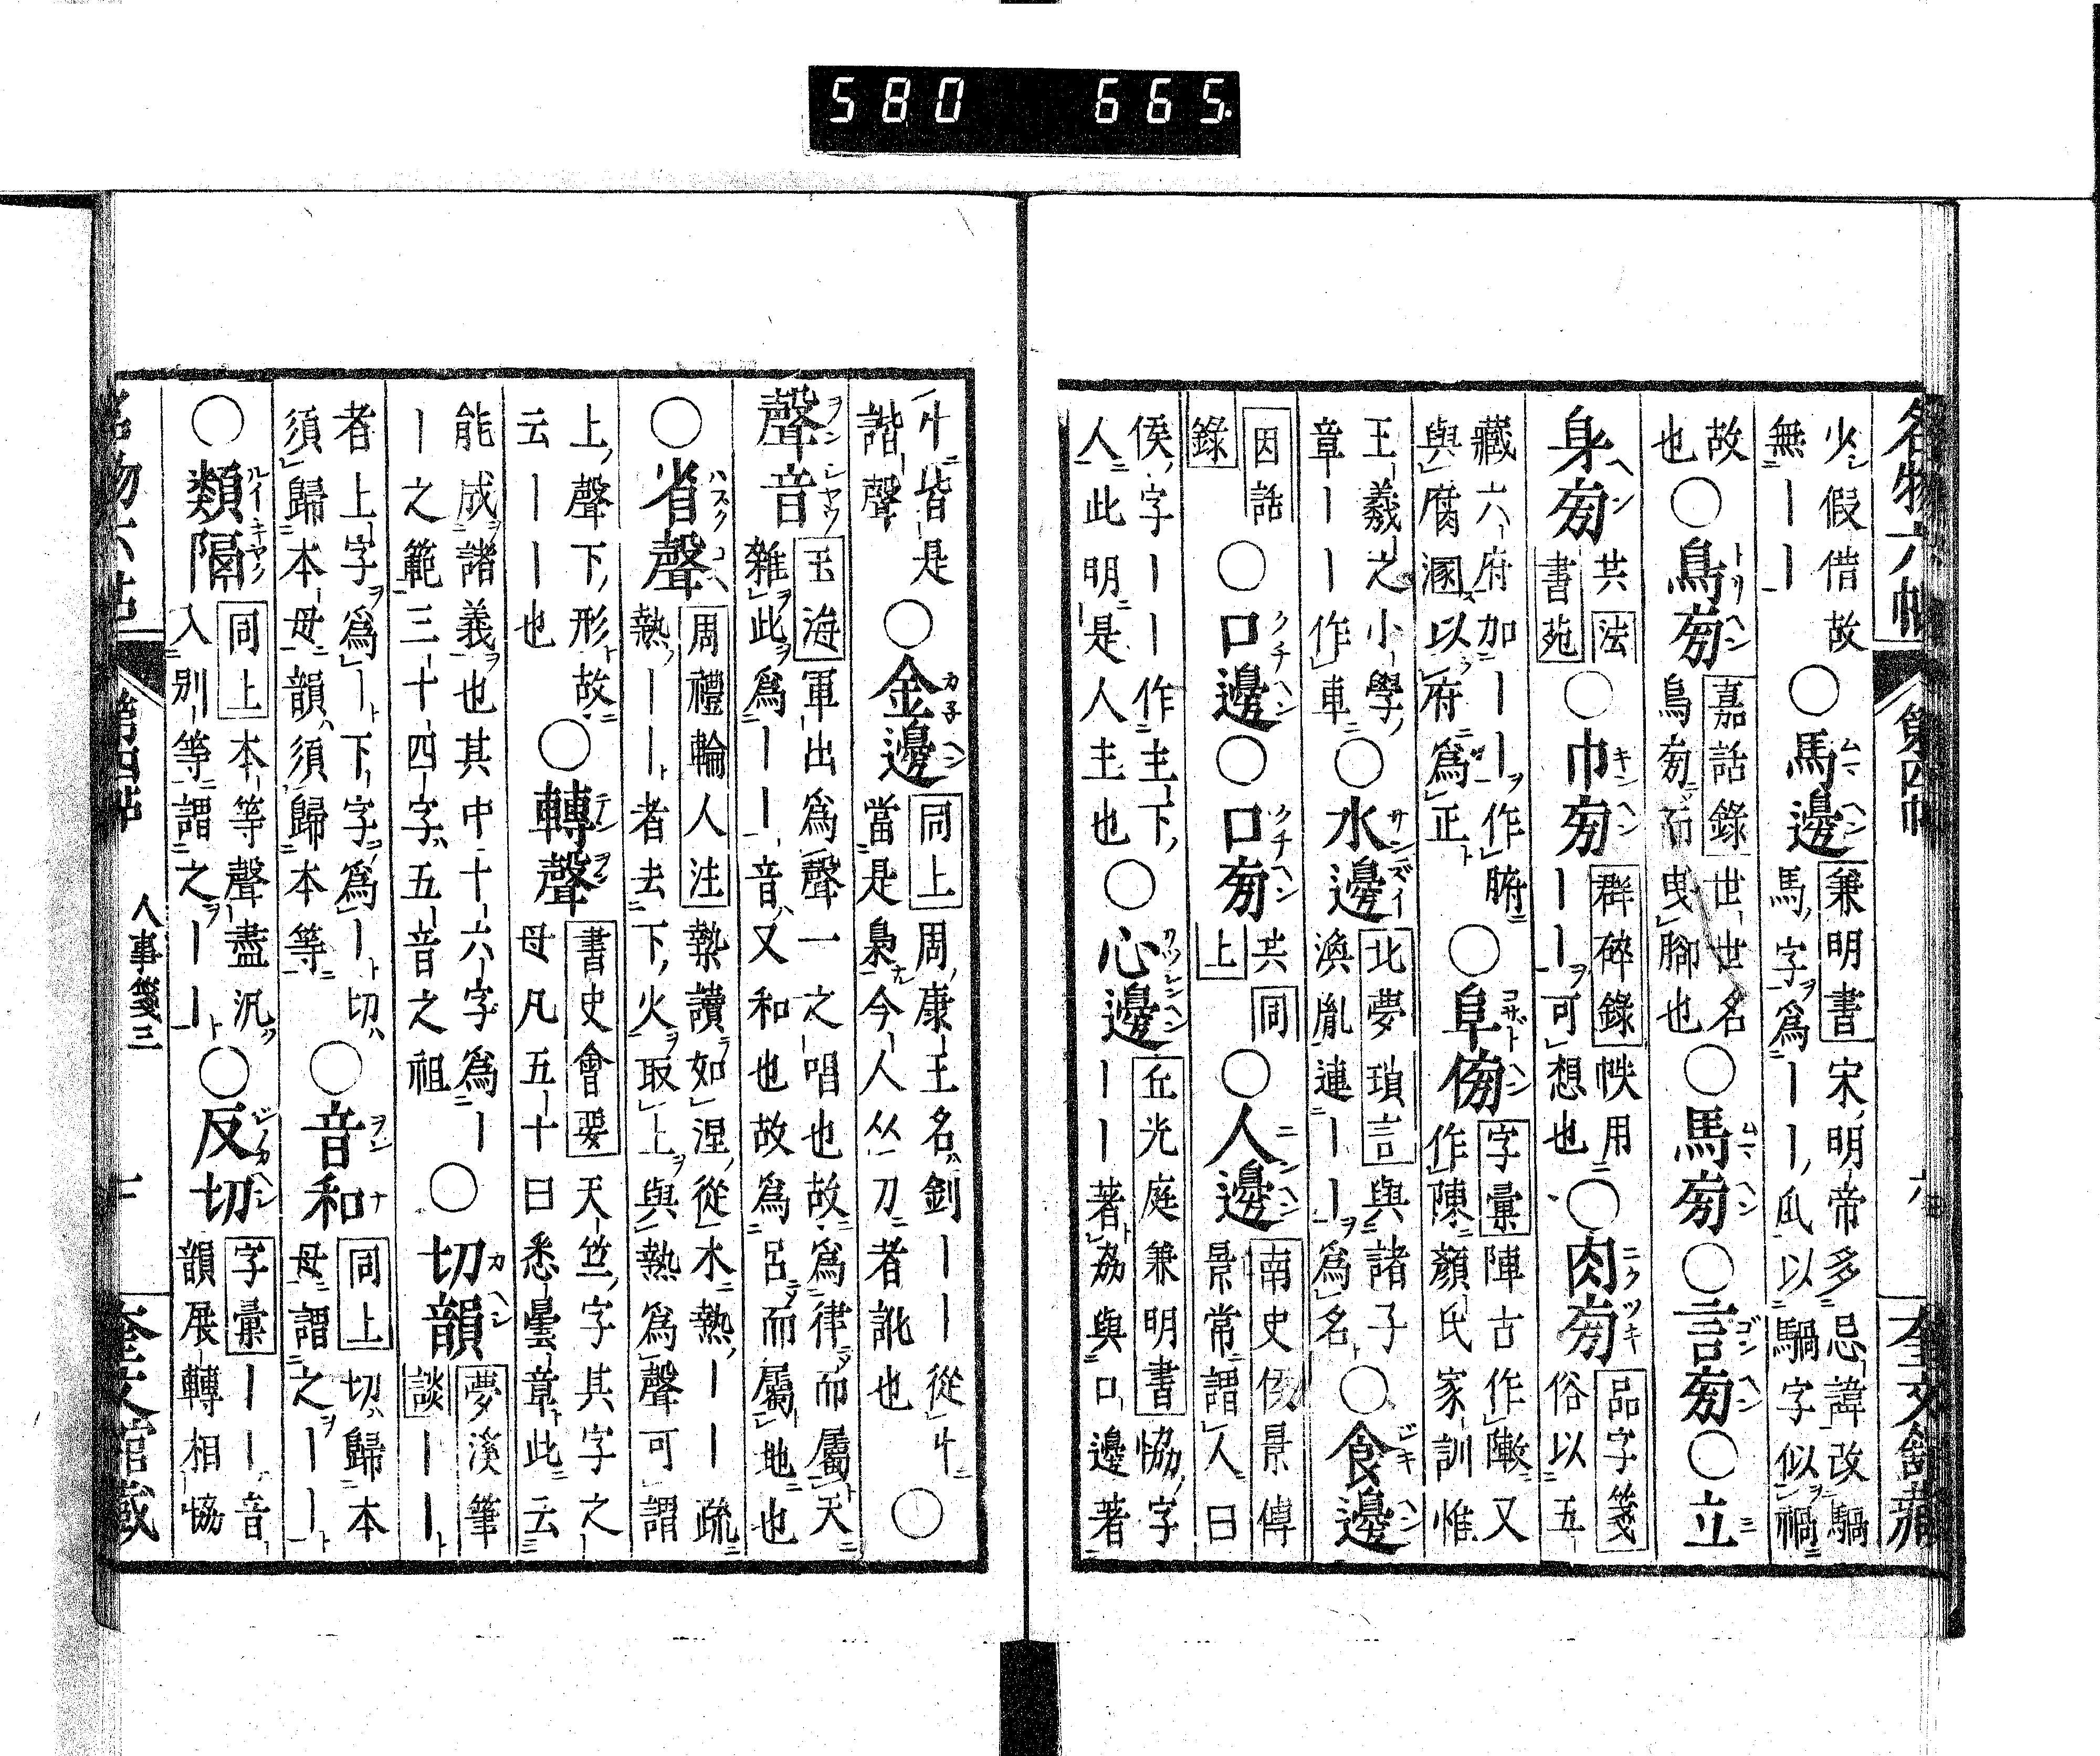 580 665
名物六帖 第四帖 六 奎文館藏
火假借故
無｜｜
○馬邊
兼明書宋明帝多忌諱改騧
馬字爲｜｜瓜以騧字似禍
故
也
○鳥旁
嘉話錄世世名
烏旁而曳腳也
○馬旁○言旁○立
身旁
共法
書苑
○巾旁
群碎錄帙用
｜｜可想也
○肉旁
品字箋
俗以五
藏六府加｜｜作腑
與腐溷以府爲正
○阜傍
字彙陣古作敶又
作陳顏氏家訓惟
王羲之小學
章｜｜作車
○水邊
北夢瑣言與諸子
渙胤連｜｜爲名
○食邊
因話
錄
○口邊○口旁
共同
上
○人邊
南史侯景傳
景常謂人曰
侯字｜｜作主下
人此明是人主也
○心邊
丘光庭兼明書恊字
｜｜著劦與口邊著
十皆是
諧聲
○金邊
同上周康王名釗｜｜從十
當是梟今人从刀者訛也
○
聲音
玉海軍出爲聲一之唱也故爲律而屬天
雜此爲｜｜音又和也故爲呂而屬地也
○省聲
周禮輪人注爇讀如涅從水熱｜｜疏
熱｜｜者去下火取上與熱爲聲可謂
上聲下形故
云｜｜｜也
○轉聲
書史會要天竺字其字之
母凡五十曰悉曇章此云
能成諸義也其中十六字爲｜
｜之範三十四字五音之祖
○切韻
夢溪筆
談｜｜
者上字爲｜下字爲｜切
須歸本母韻須歸本等
○音和
同上切歸本
母謂之｜｜
○類隔
同上本等聲盡汎
入別等謂之｜｜
○反切
字彙｜｜音
韻展轉相恊
名物六帖 第四帖 人事箋三 十 奎文館藏